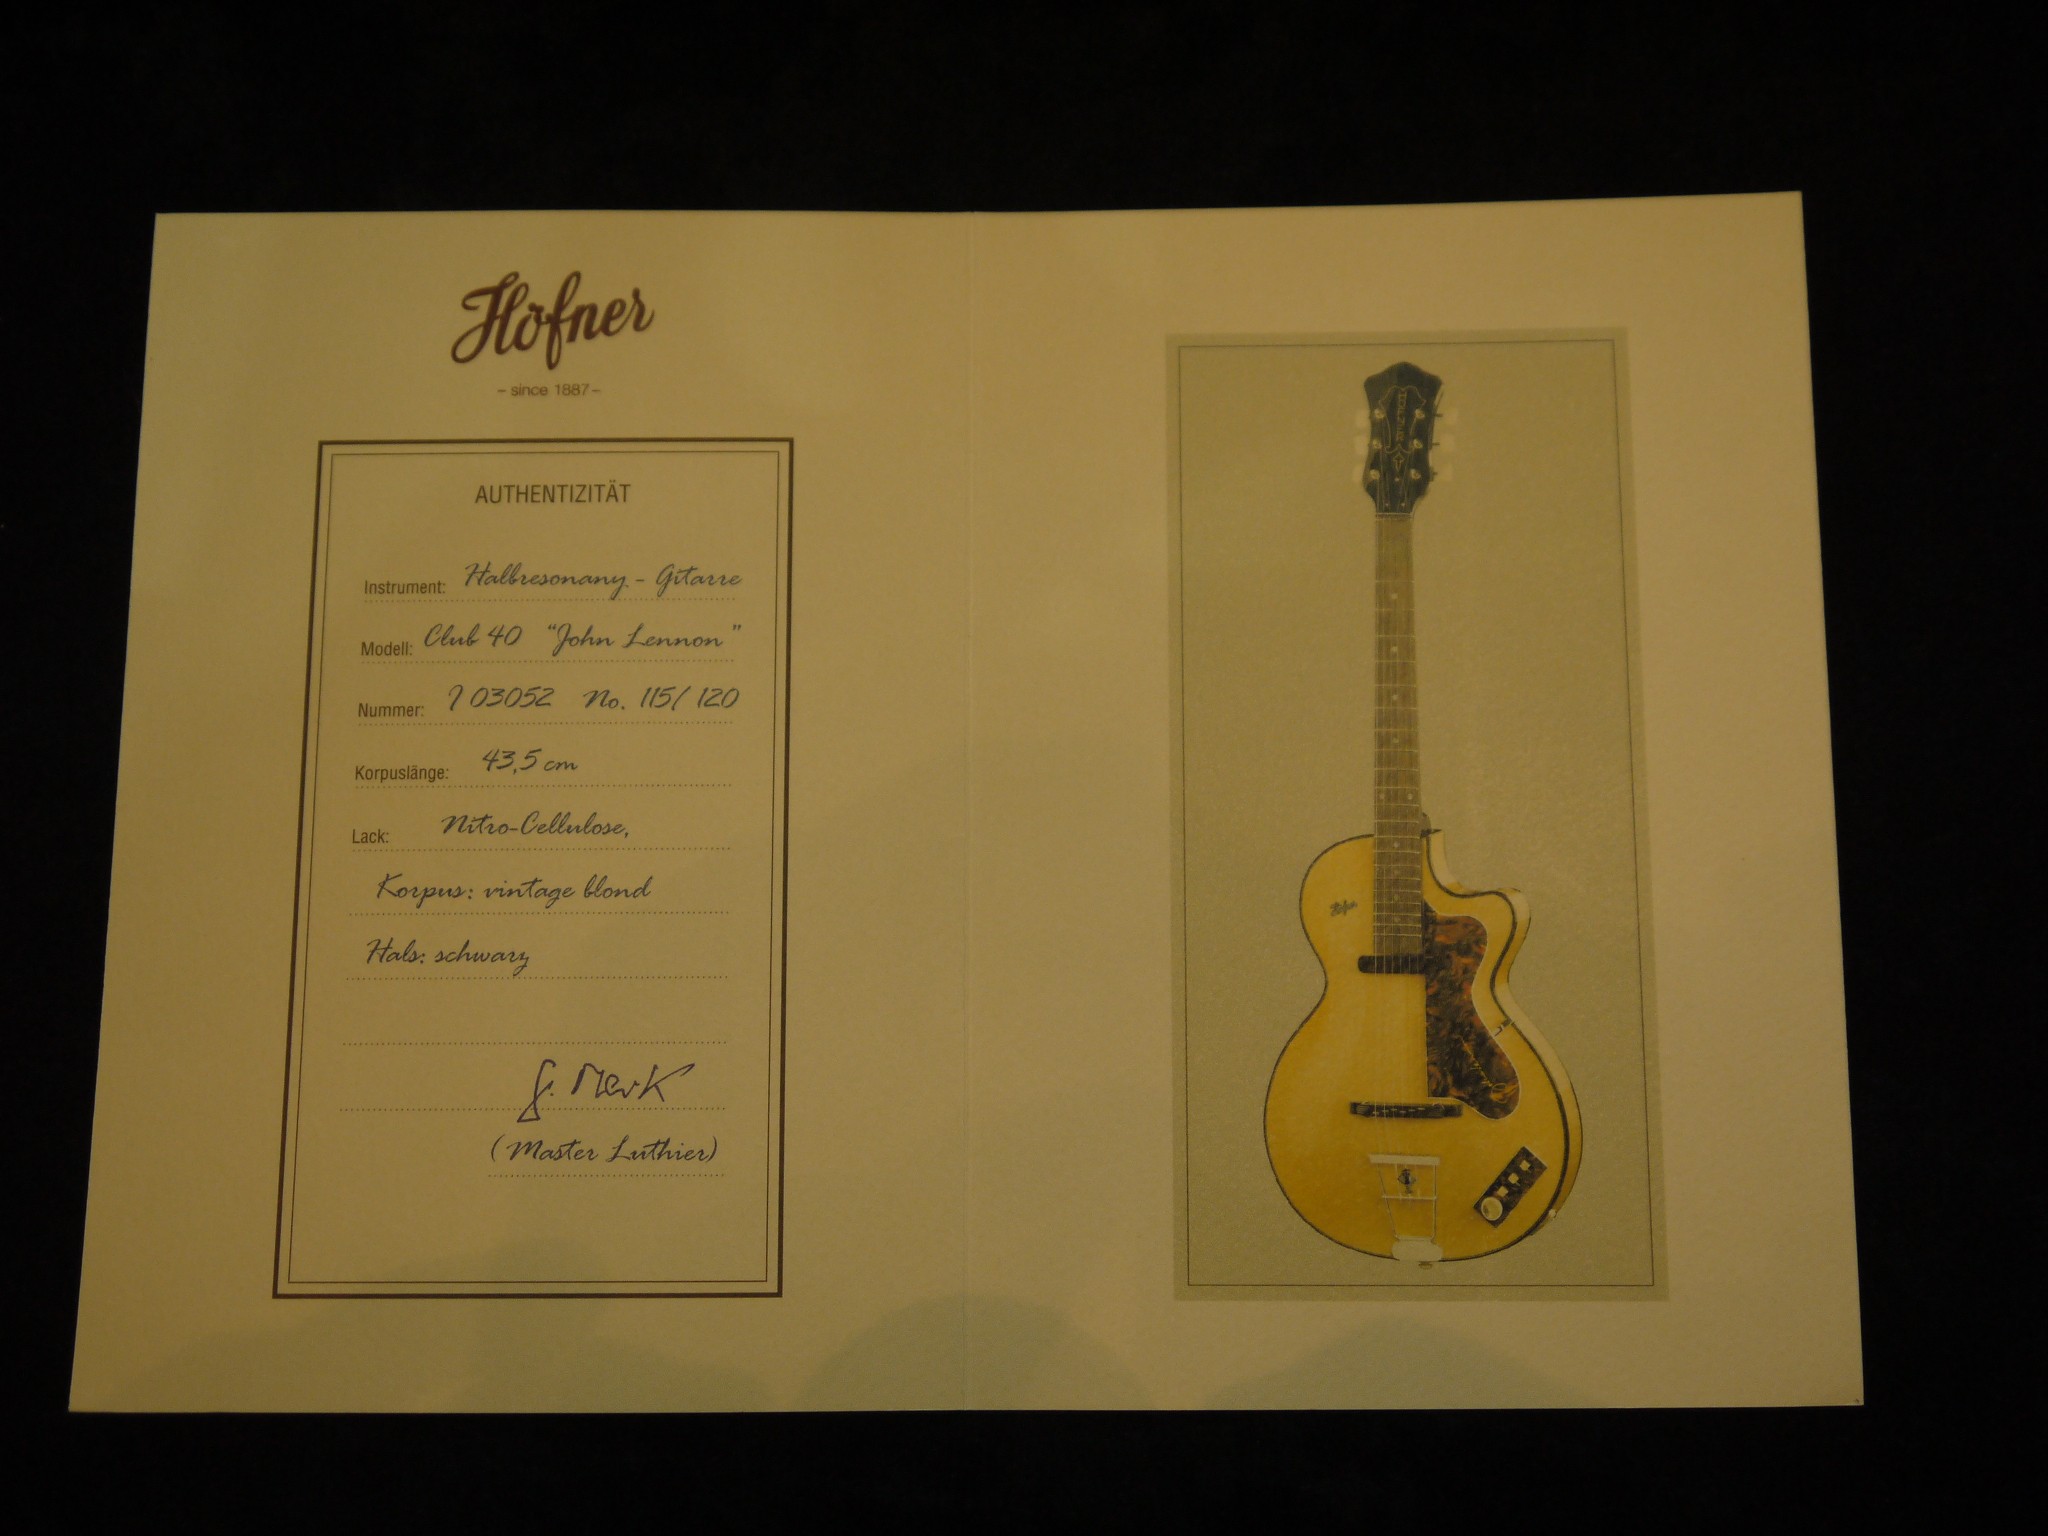 Höfner
– since 1887 –
AUTHENTIZITÄT
Instrument: Halbresonanz - Gitarre
Modell: Club 40 "John Lennon"
Nummer: J 03052 No. 115/120
Korpuslänge: 43,5 cm
Lack: Nitro-Cellulose,
Korpus: vintage blond
Hals: schwarz
G. Merk
(Master Luthier)